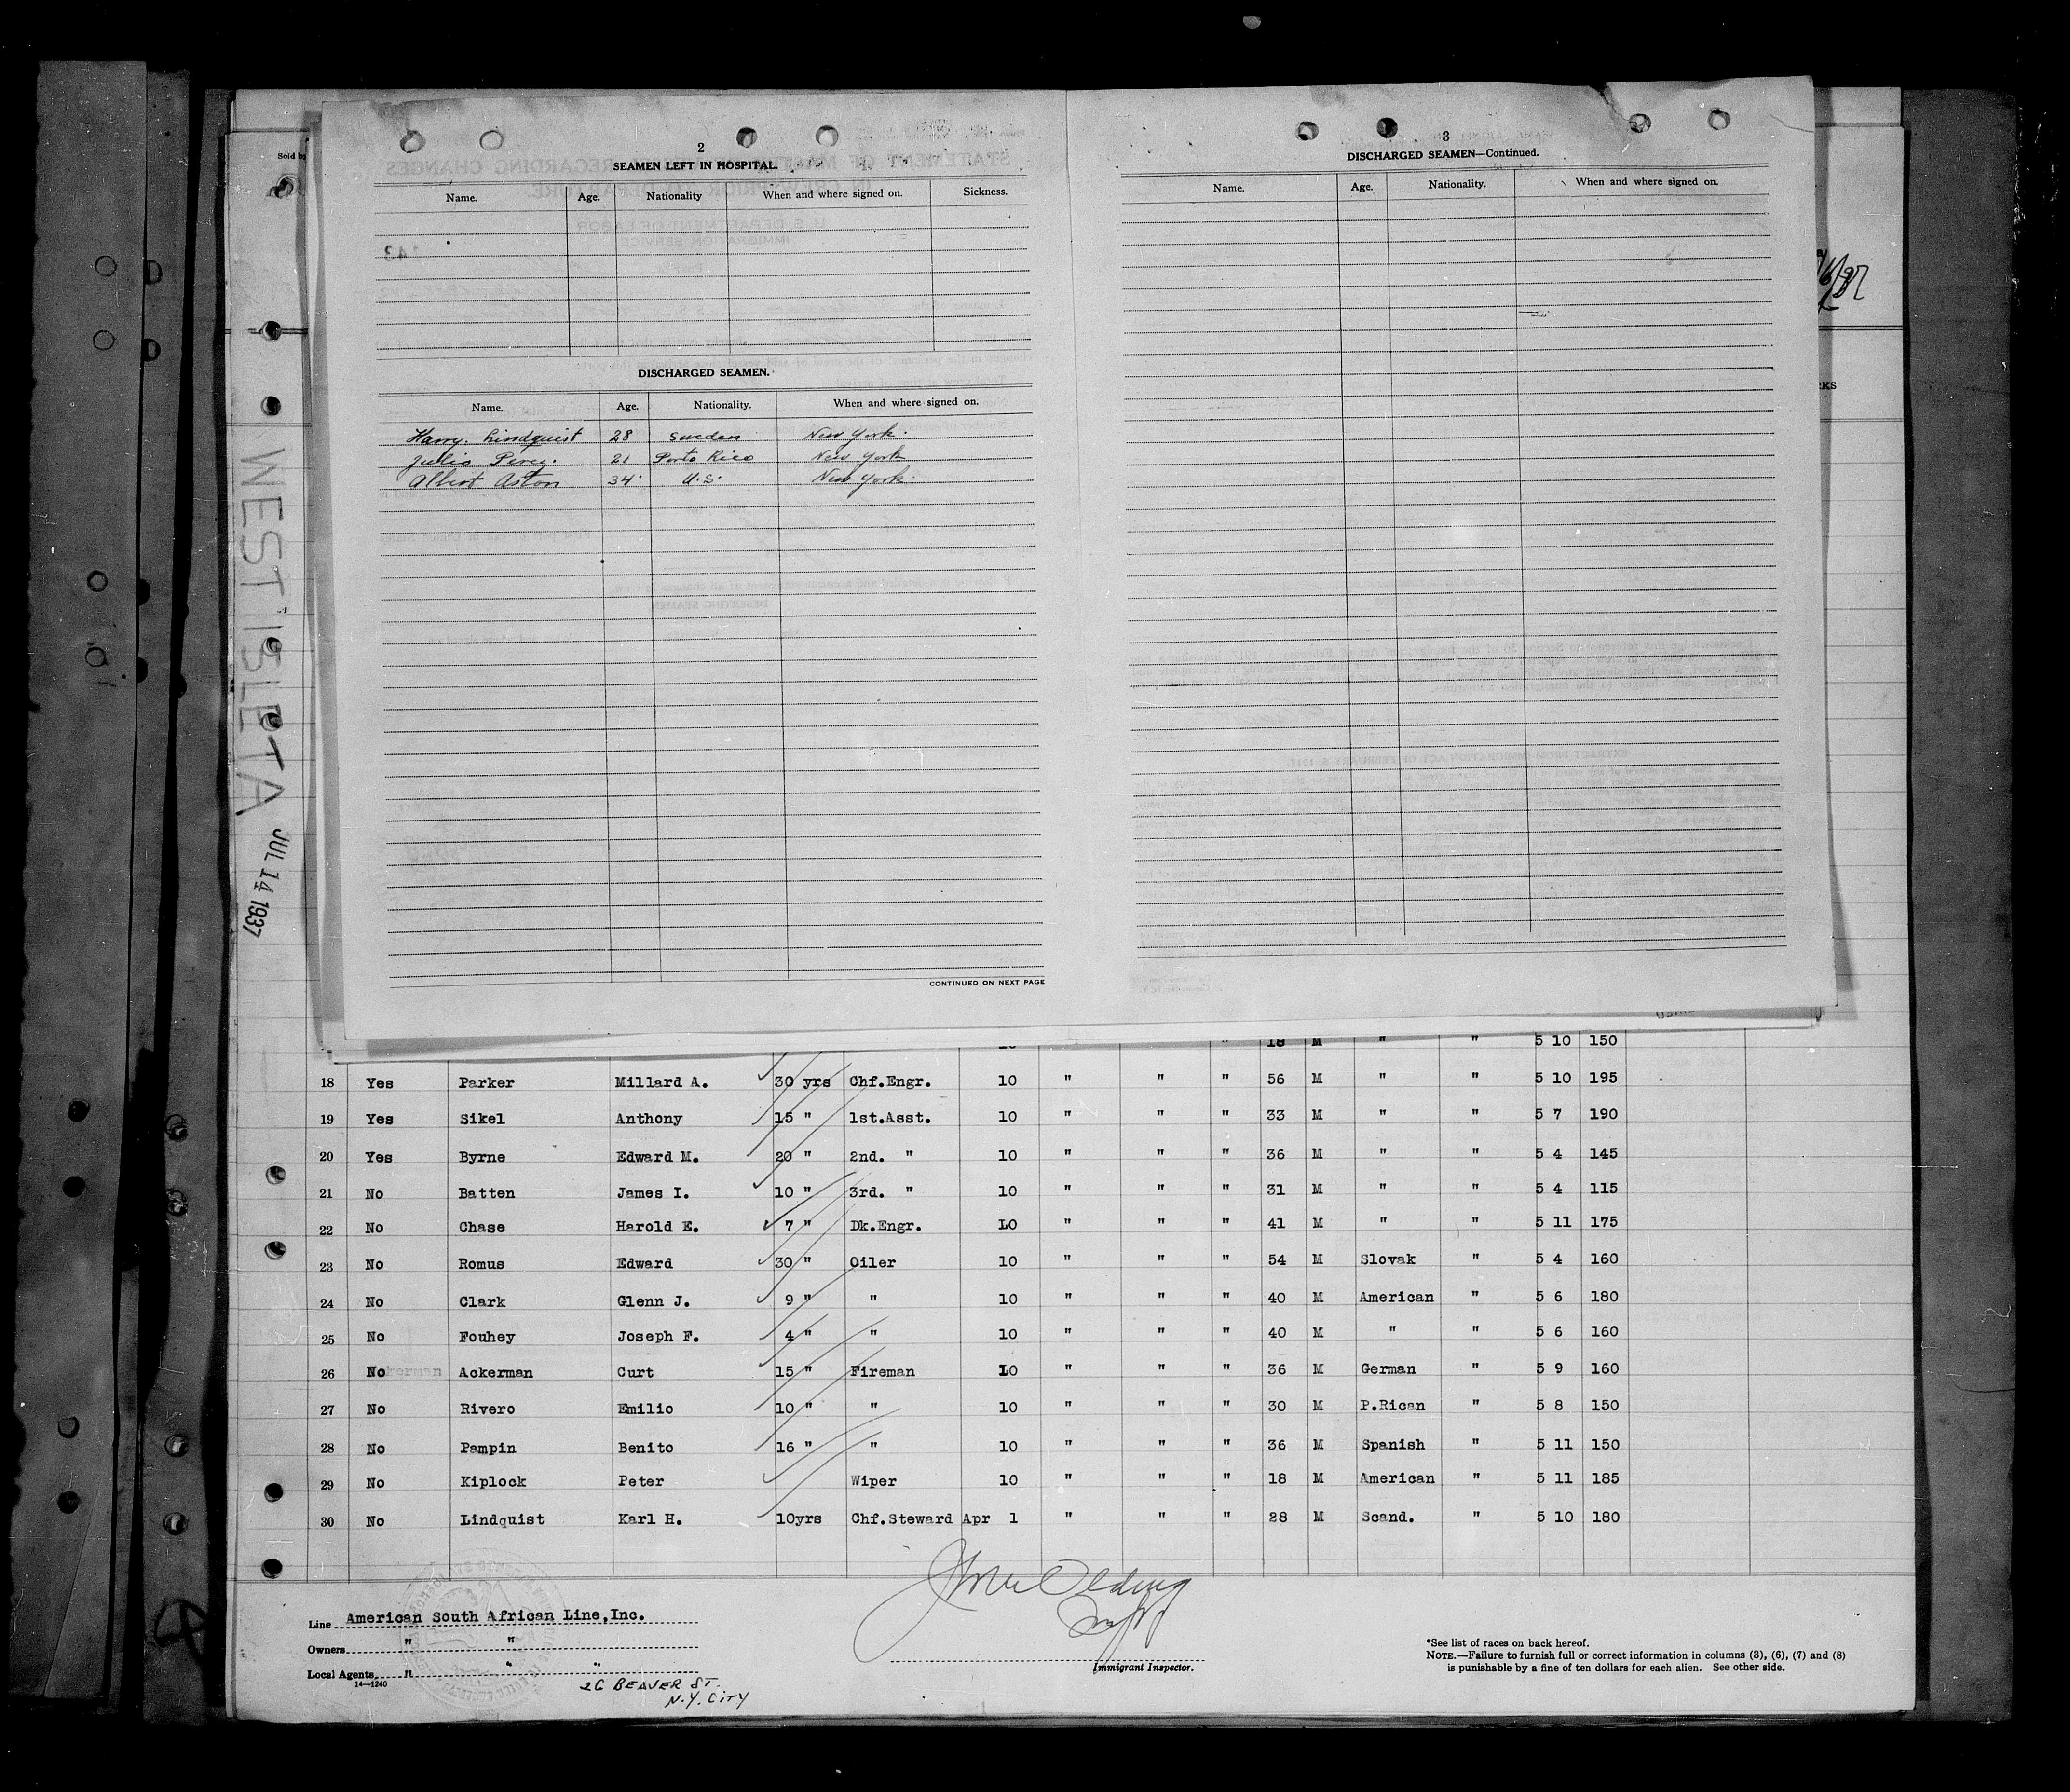 Sold by
WEST ISLETA JUL 14 1937
2
SEAMEN LEFT IN HOSPITAL.
Name. Age. Nationality When and where signed on. Sickness.
DISCHARGED SEAMEN.
Name. Age. Nationality. When and where signed on.
Harry. Lindquist 28 Sweden New York.
Julio Perez. 21 Porto Rico New York
Albert Aston 34 U.S. New York.
CONTINUED ON NEXT PAGE
3
DISCHARGED SEAMEN—Continued.
Name. Age. Nationality. When and where signed on.
18 M " " 5 10 150
18 Yes Parker Millard A. 30 yrs Chf.Engr. 10 " " " 56 M " " 5 10 195
19 Yes Sikel Anthony 15 " 1st.Asst. 10 " " " 33 M " " 5 7 190
20 Yes Byrne Edward M. 20 " 2nd. " 10 " " " 36 M " " 5 4 145
21 No Batten James I. 10 " 3rd. " 10 " " " 31 M " " 5 4 115
22 No Chase Harold E. 7 " Dk.Engr. 10 " " " 41 M " " 5 11 175
23 No Romus Edward 30 " Oiler 10 " " " 54 M Slovak " 5 4 160
24 No Clark Glenn J. 9 " " 10 " " " 40 M American " 5 6 180
25 No Fouhey Joseph F. 4 " " 10 " " " 40 M " " 5 6 160
26 No Ackerman Curt 15 " Fireman 10 " " " 36 M German " 5 9 160
27 No Rivero Emilio 10 " " 10 " " " 30 M P.Rican " 5 8 150
28 No Pampin Benito 16 " " 10 " " " 36 M Spanish " 5 11 150
29 No Kiplock Peter Wiper 10 " " " 18 M American " 5 11 185
30 No Lindquist Karl H. 10yrs Chf.Steward Apr 1 " " " 28 M Scand. " 5 10 180
Line American South African Line,Inc.
Owners " "
Local Agents " " "
14—1240
26 BEAVER ST.
N.Y. CITY
Immigrant Inspector.
*See list of races on back hereof.
NOTE.—Failure to furnish full or correct information in columns (3), (6), (7) and (8)
is punishable by a fine of ten dollars for each alien. See other side.